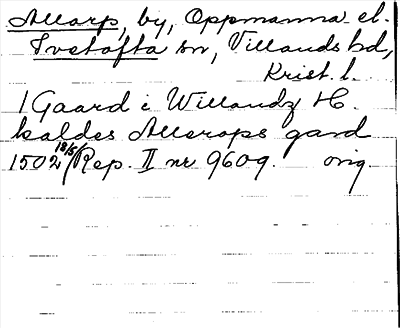 Allarp, by, Oppmanna el.
Ivetofta sn, Villands hd,
Krist. l.
1 Gaard i Willandz H.
kaldes Allerops gard
1502 18/5 Rep. II nr 9609. orig.